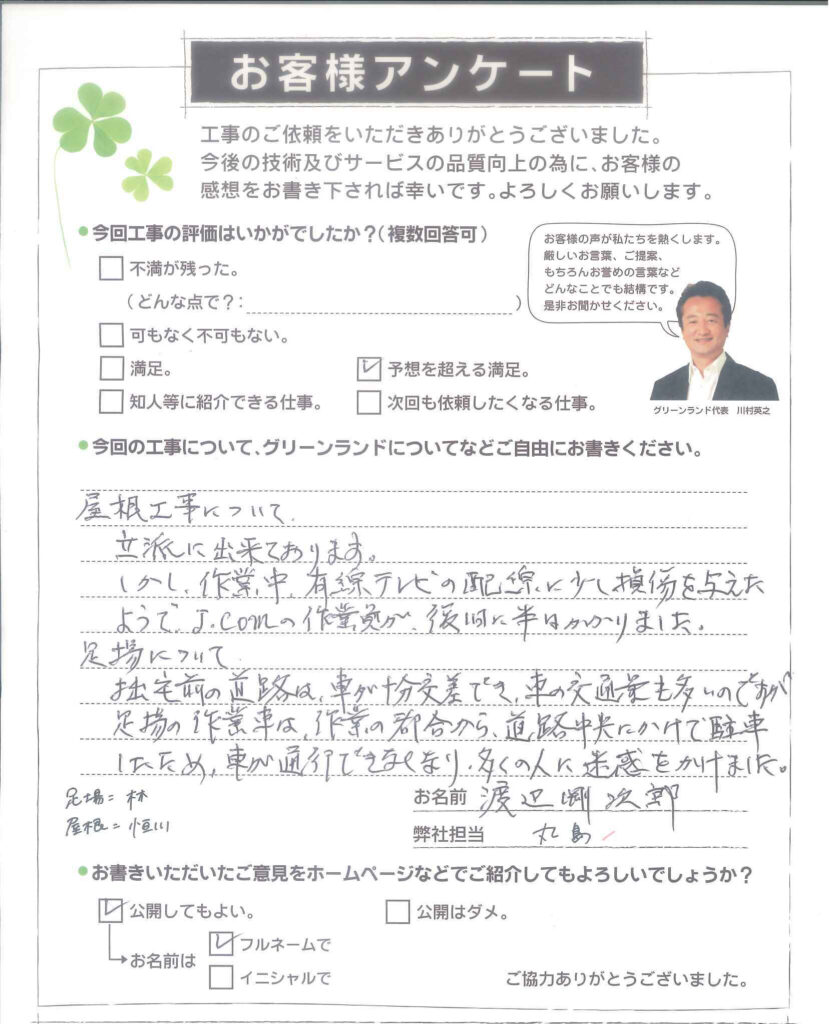 お客様アンケート
工事のご依頼をいただきありがとうございました。
今後の技術及びサービスの品質向上の為に、お客様の
感想をお書き下されば幸いです。よろしくお願いします。
今回工事の評価はいかがでしたか?(複数回答可)
不満が残った。
(どんな点で?: )
可もなく不可もない。
満足。
予想を超える満足。
知人等に紹介できる仕事。
次回も依頼したくなる仕事。
お客様の声が私たちを熱くします。
厳しいお言葉、ご提案、
もちろんお誉めの言葉など
どんなことでも結構です。
是非お聞かせください。
グリーンランド代表 川村英之
今回の工事について、グリーンランドについてなどご自由にお書きください。
屋根工事について.
立派に出来ております。
しかし、作業中、有線テレビの配線に少し損傷を与えた
ようで、J.comの作業員が、復旧に半日かかりました。
足場について.
拙宅前の道路は、車が十分交差でき、車の交通量も多いのですが
足場の作業車は、作業の都合から、道路中央にかけて駐車
したため、車が通行できなくなり、多くの人に迷惑をかけました。
足場=林
屋根=恒川
お名前 渡辺剛次郎
弊社担当 丸島
お書きいただいたご意見をホームページなどでご紹介してもよろしいでしょうか?
公開してもよい。
公開はダメ。
お名前は
フルネームで
イニシャルで
ご協力ありがとうございました。